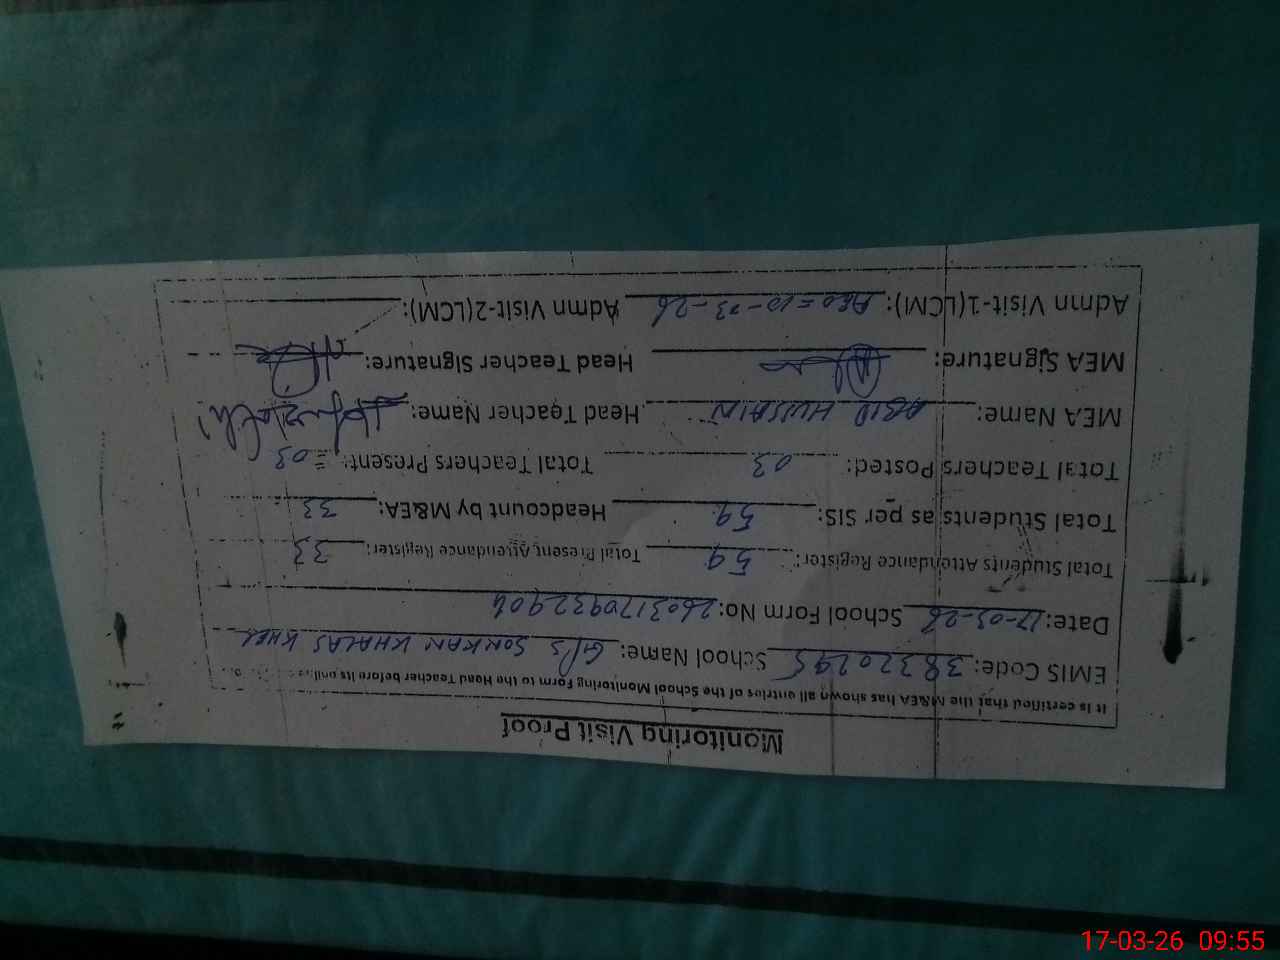 Monitoring Visit Proof
It is certified that the M&EA has shown all entries of the School Monitoring Form to the Head Teacher before its
EMIS Code: 38320295 School Name: GPS SONKAN KHALAS KHEL
Date: 17-03-26 School Form No: 2603170932904
Total Students Attendance Register: 59 Total Present Attendance Register: 33
Total Students as per SIS: 59 Headcount by M&EA: 33
Total Teachers Posted: 03 Total Teachers Present: 03
MEA Name: ABID HUSSAIN Head Teacher Name:
MEA Signature: Head Teacher Signature:
Admn Visit-1(LCM): AEO=10-03-26 Admn Visit-2(LCM):
17-03-26 09:55